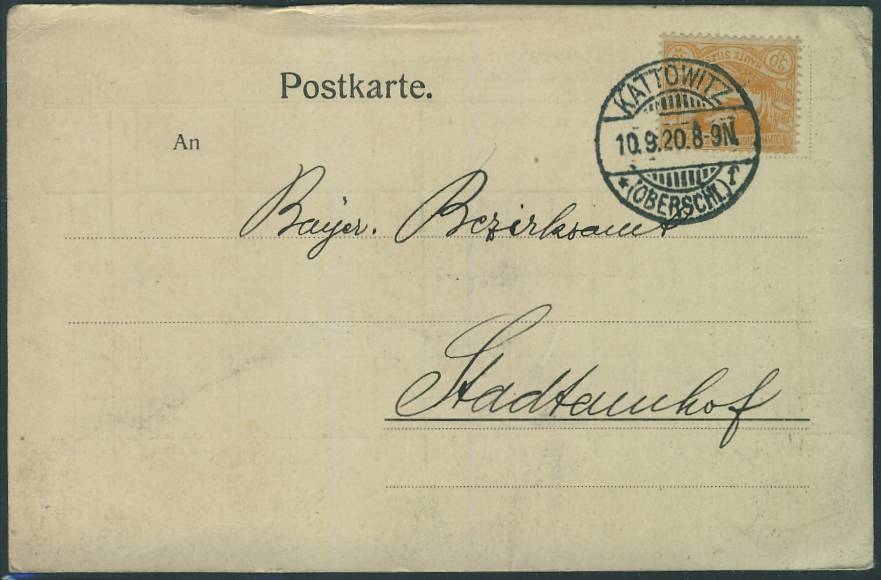 Postkarte.
An
30
HAUTE SILÉSIE
KATTOWITZ
10.9.20.8-9N.
* (OBERSCHL.) f
Bayer. Bezirksamt
Stadtamhof